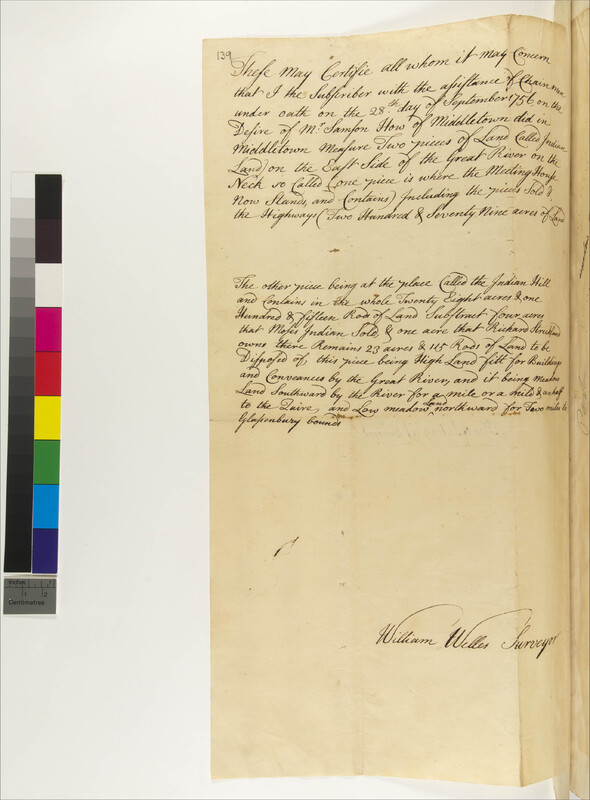 139
These May Certifie all whom it May Concern
that I the Subscriber with the assistance of Chain men
under oath on the 28.th day of September 1756 on the
Desire of Mr Samson How of Middletown did in
Middletown Measure Two pieces of Land Called Indian
Land) on the East Side of the Great River on the
Neck so Called (one piece is where the Meeting House
Now Stands, and Contains) Including the pieces Sold &
the Highways (Two Hundred & Seventy Nine acres of Land
The other piece being at the place Called the Indian Hill
and Contains in the whole Twenty Eight acres & one
Hundred & fifteen Rod of Land Substract four acres
that Moses Indian Sold, & one acre that Richard Strickland
owns there Remains 23 acres & 115 Rods of Land to be
Disposed of this piece being High Land fitt for Buildings
and Conveances by the Great River, and it being Meadow
Land Southward by the River for a mile or a mile & a half
to the , and Low meadow Land northward for Two miles to
Glassenbury bounds
William Welles Surveyor
inches
1 2
Centimetres